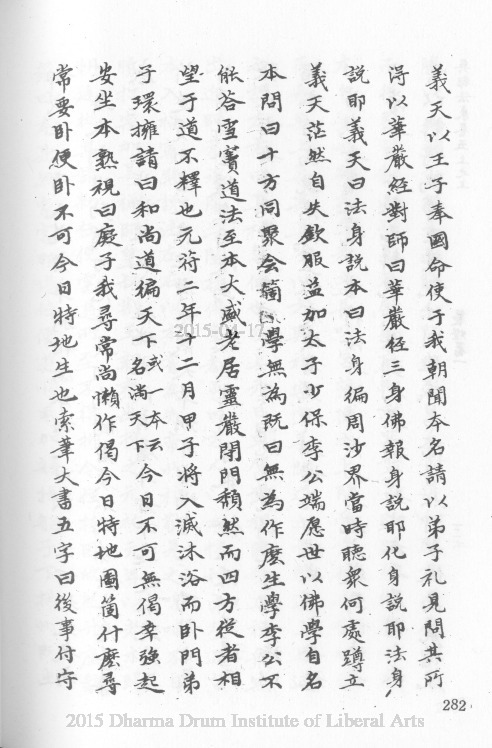 義天以王子奉國命使于我朝聞本名請以弟子礼見問其所
得以華嚴經對師曰華嚴經三身佛報身說耶化身說耶法身
說耶義天曰法身說本曰法身徧周沙界當時聽衆何處蹲立
義天茫然自失欽服益加太子少保李公端愿世以佛學自名
本問曰十方同聚會箇箇學無為既曰無為作麼生學李公不
能荅雪竇道法至本大盛老居靈巖閉門頹然而四方從者相
望于道不釋也元符二年十二月甲子將入滅沐浴而卧門弟
子環擁請曰和尚道徧天下或一本云名滿天下今日不可無偈幸強起
安坐本熟視曰癡子我尋常尚懶作偈今日特地圖箇什麼尋
常要卧便卧不可今日特地坐也索筆大書五字曰後事付守
282
2015-04-17
2015 Dharma Drum Institute of Liberal Arts